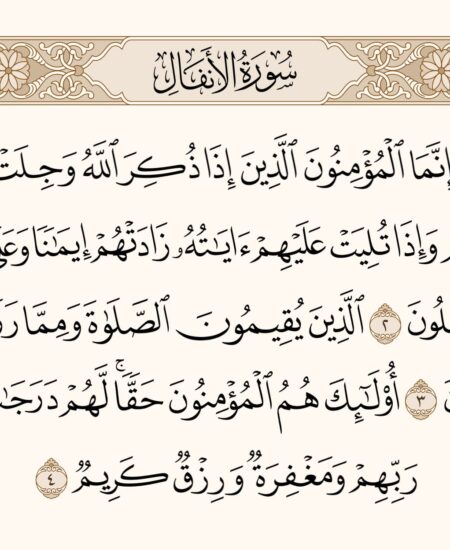 سُورَةُ الأَنفَالِ
إِنَّمَا ٱلْمُؤْمِنُونَ ٱلَّذِينَ إِذَا ذُكِرَ ٱللَّهُ وَجِلَتْ
وَإِذَا تُلِيَتْ عَلَيْهِمْ ءَايَٰتُهُۥ زَادَتْهُمْ إِيمَٰنًا وَعَلَ
لُونَ ٢ ٱلَّذِينَ يُقِيمُونَ ٱلصَّلَوٰةَ وَمِمَّا رَ
نَ ٣ أُو۟لَٰٓئِكَ هُمُ ٱلْمُؤْمِنُونَ حَقًّاۚ لَّهُمْ دَرَجَٰ
رَبِّهِمْ وَمَغْفِرَةٌ وَرِزْقٌ كَرِيمٌ ٤